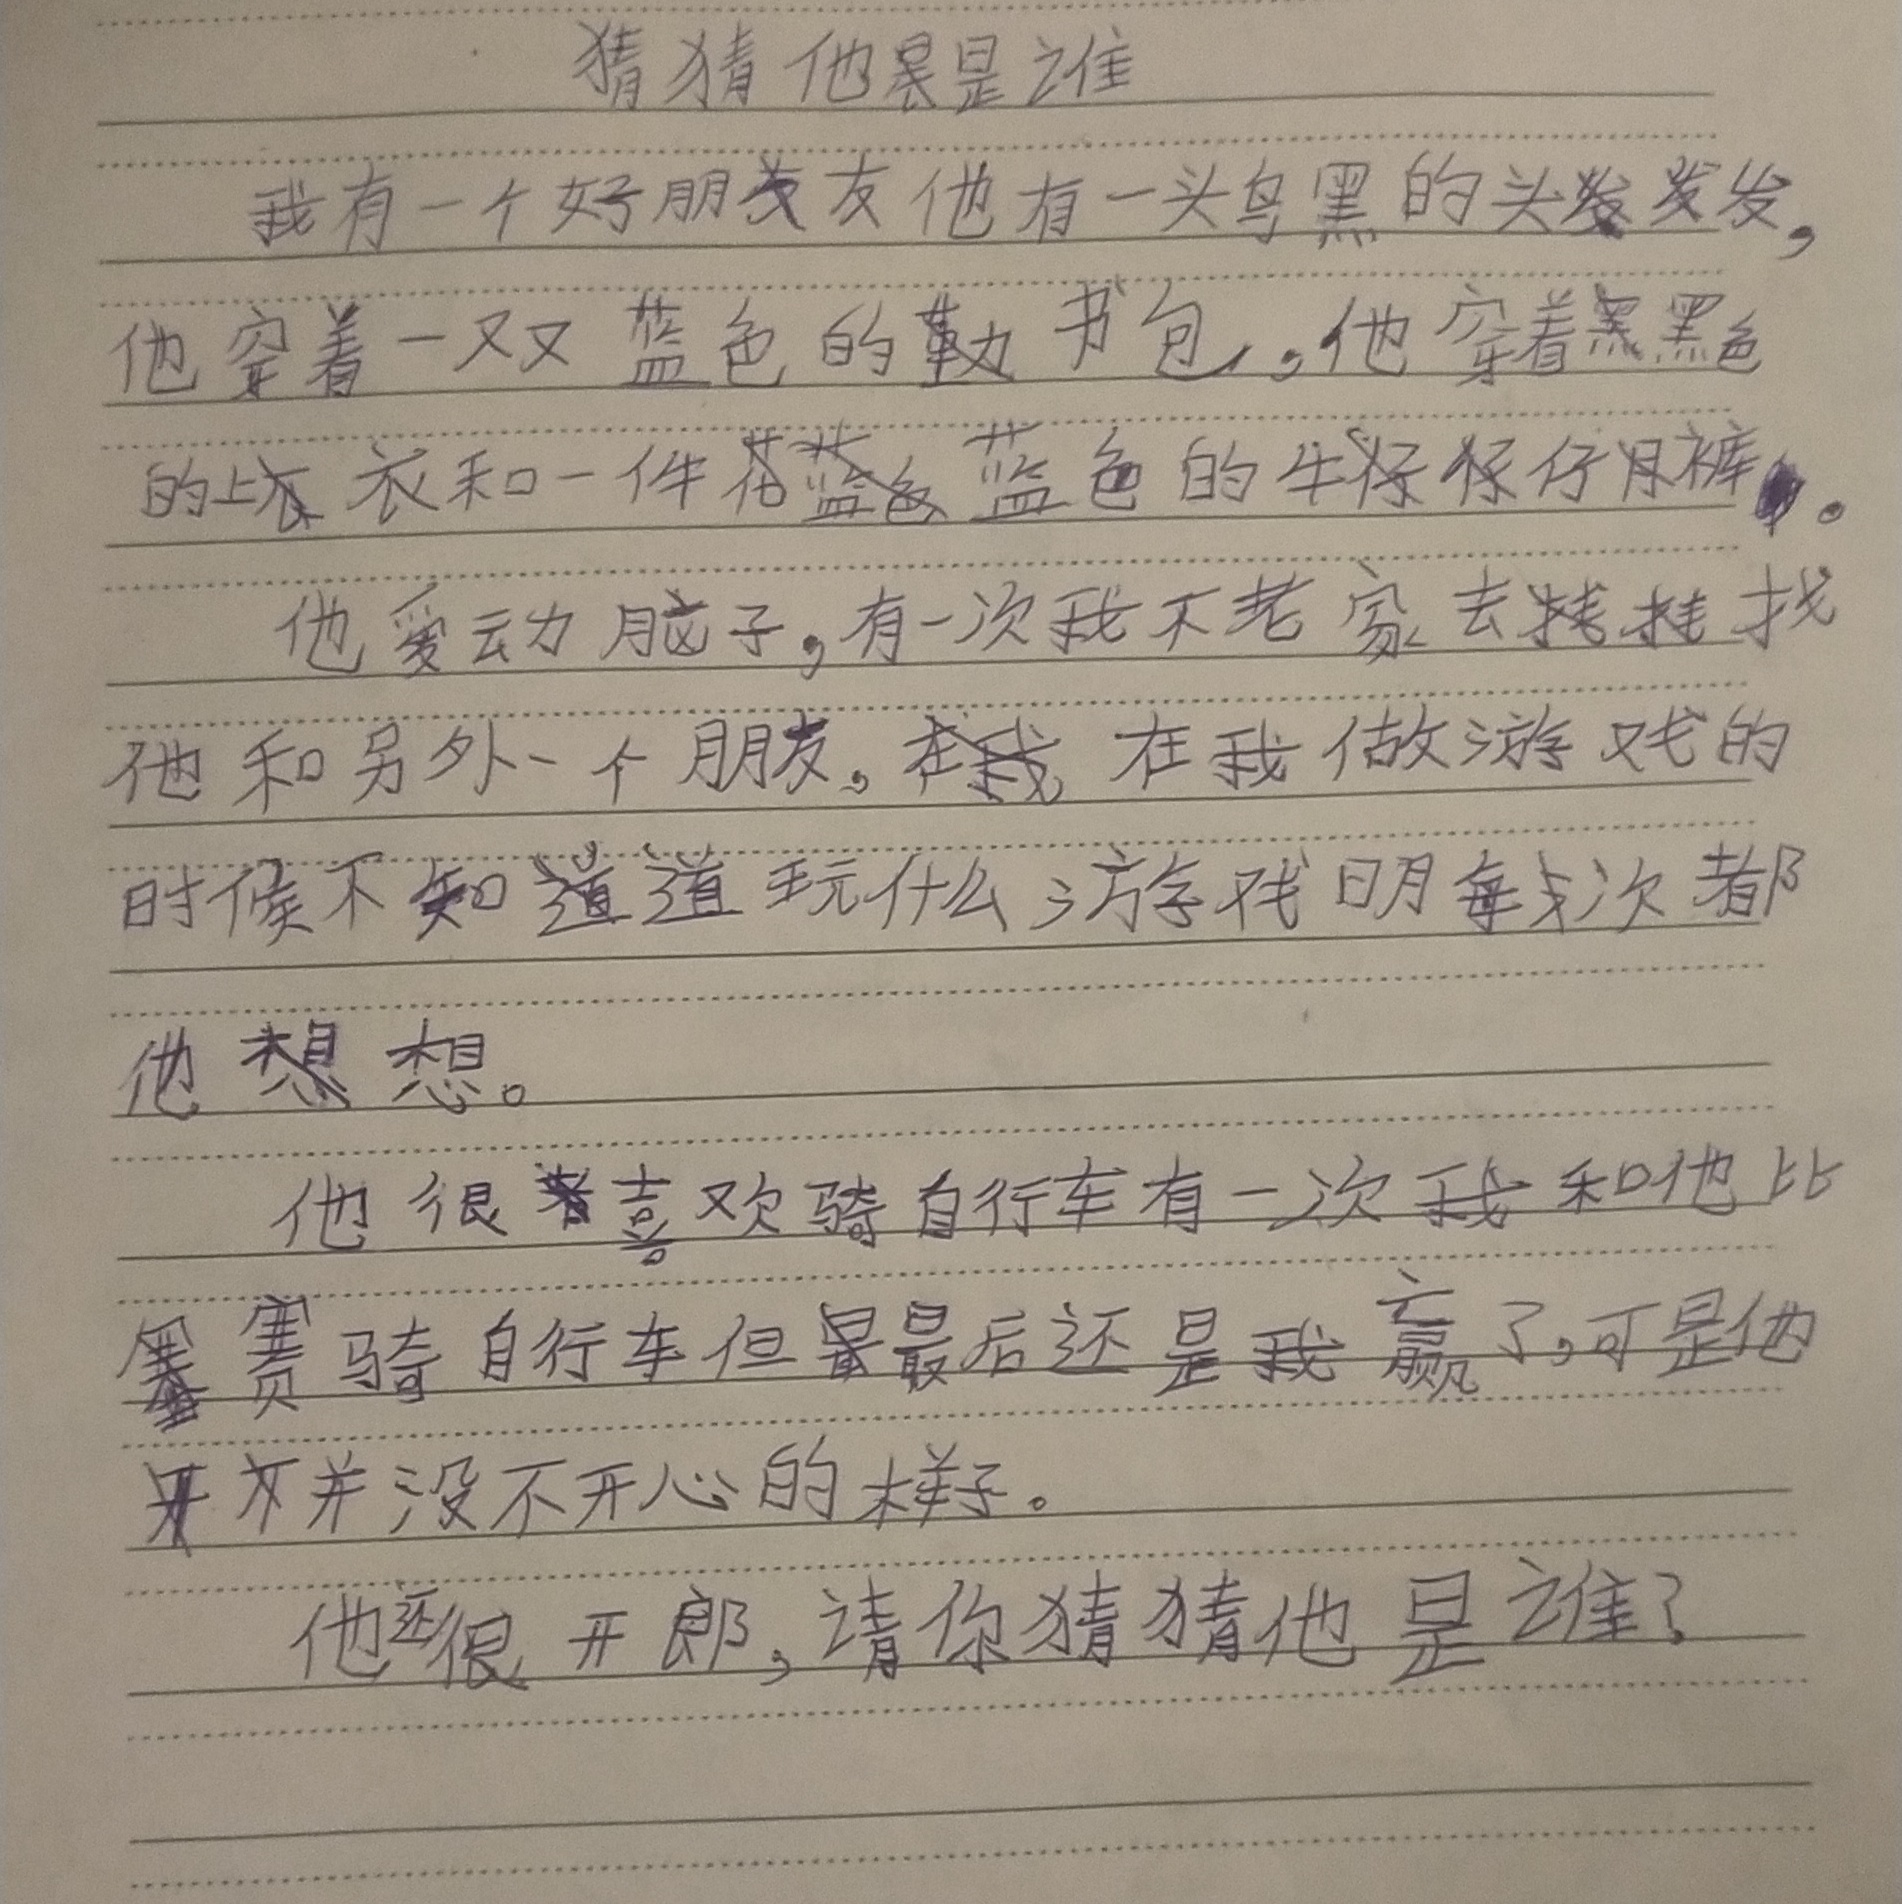 猜猜他是谁
我有一个好朋友他有一头乌黑的头发,
他穿着一双蓝色的书包,他穿着黑色
的衣和一件蓝色的牛仔裤。
他爱动脑子,有一次我不老家去找
他和另外一个朋友,在我做游戏的
时候不知道玩什么游戏明每次都
他想。
他很喜欢骑自行车有一次我和他比
赛骑自行车但最后还是我赢了,可是他
并没不开心的样子。
他还很开郎,请你猜猜他是谁?